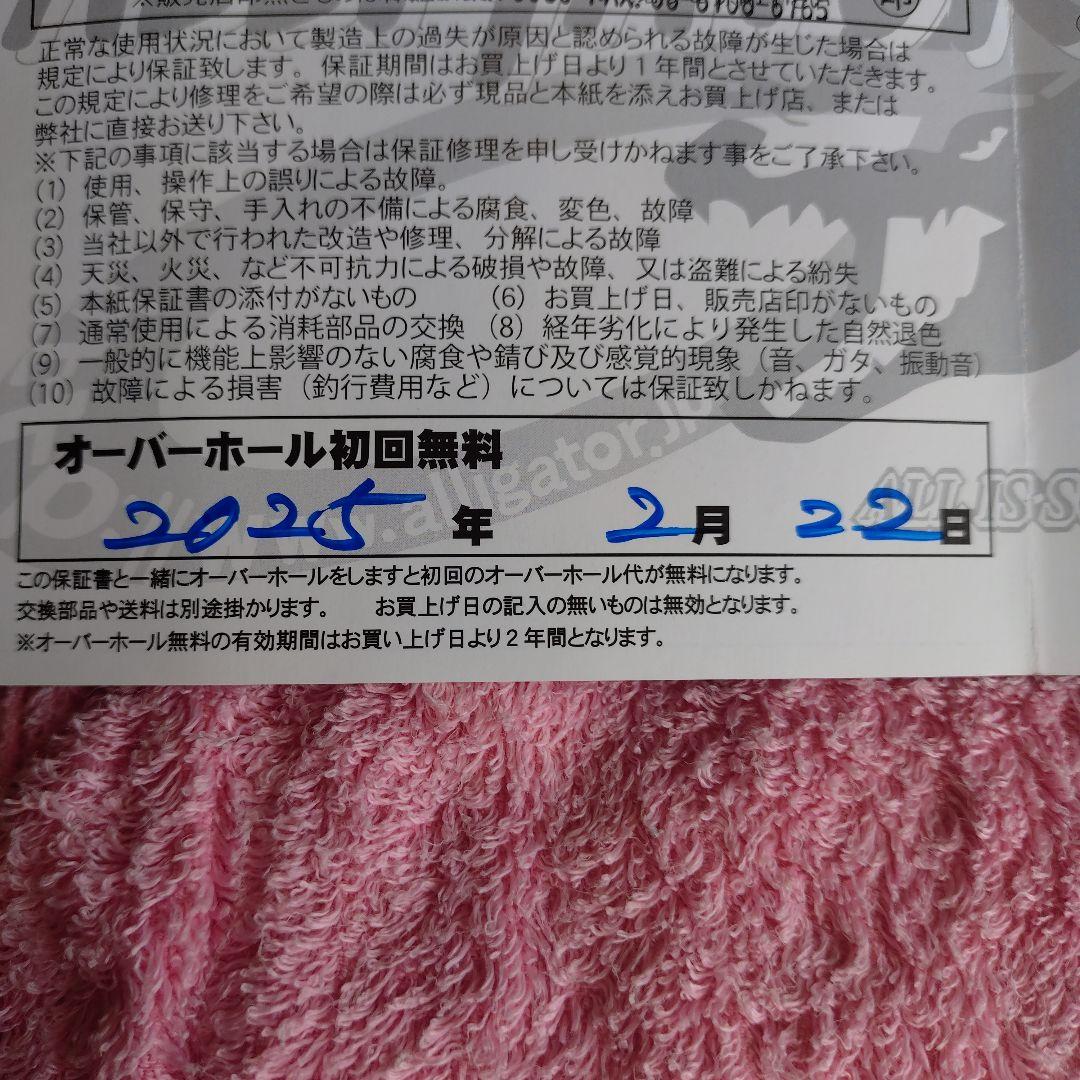 正常な使用状況において製造上の過失が原因と認められる故障が生じた場合は
規定により保証致します。保証期間はお買上げ日より1年間とさせていただきます。
この規定により修理をご希望の際は必ず現品と本紙を添えお買上げ店、または
弊社に直接お送り下さい。
※下記の事項に該当する場合は保証修理を申し受けかねます事をご了承下さい。
(1) 使用、操作上の誤りによる故障。
(2) 保管、保守、手入れの不備による腐食、変色、故障
(3) 当社以外で行われた改造や修理、分解による故障
(4) 天災、火災、など不可抗力による破損や故障、又は盗難による紛失
(5) 本紙保証書の添付がないもの (6) お買上げ日、販売店印がないもの
(7) 通常使用による消耗部品の交換 (8) 経年劣化により発生した自然退色
(9) 一般的に機能上影響のない腐食や錆び及び感覚的現象（音、ガタ、振動音）
(10) 故障による損害（釣行費用など）については保証致しかねます。
オーバーホール初回無料
www.alligator.jp
2025年 2月 22日
この保証書と一緒にオーバーホールをしますと初回のオーバーホール代が無料になります。
交換部品や送料は別途掛かります。 お買上げ日の記入の無いものは無効となります。
※オーバーホール無料の有効期間はお買い上げ日より2年間となります。